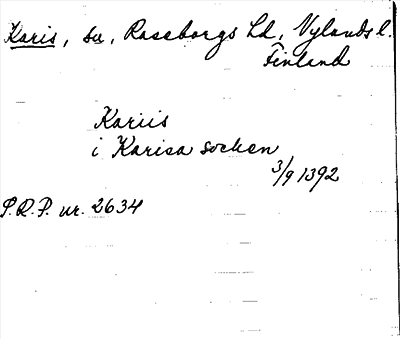 Karis, su, Raseborgs Ld, Nylands l.
Finland
Kariis
i Karisa socken
3/9 1392
S.R.P. nr. 2634